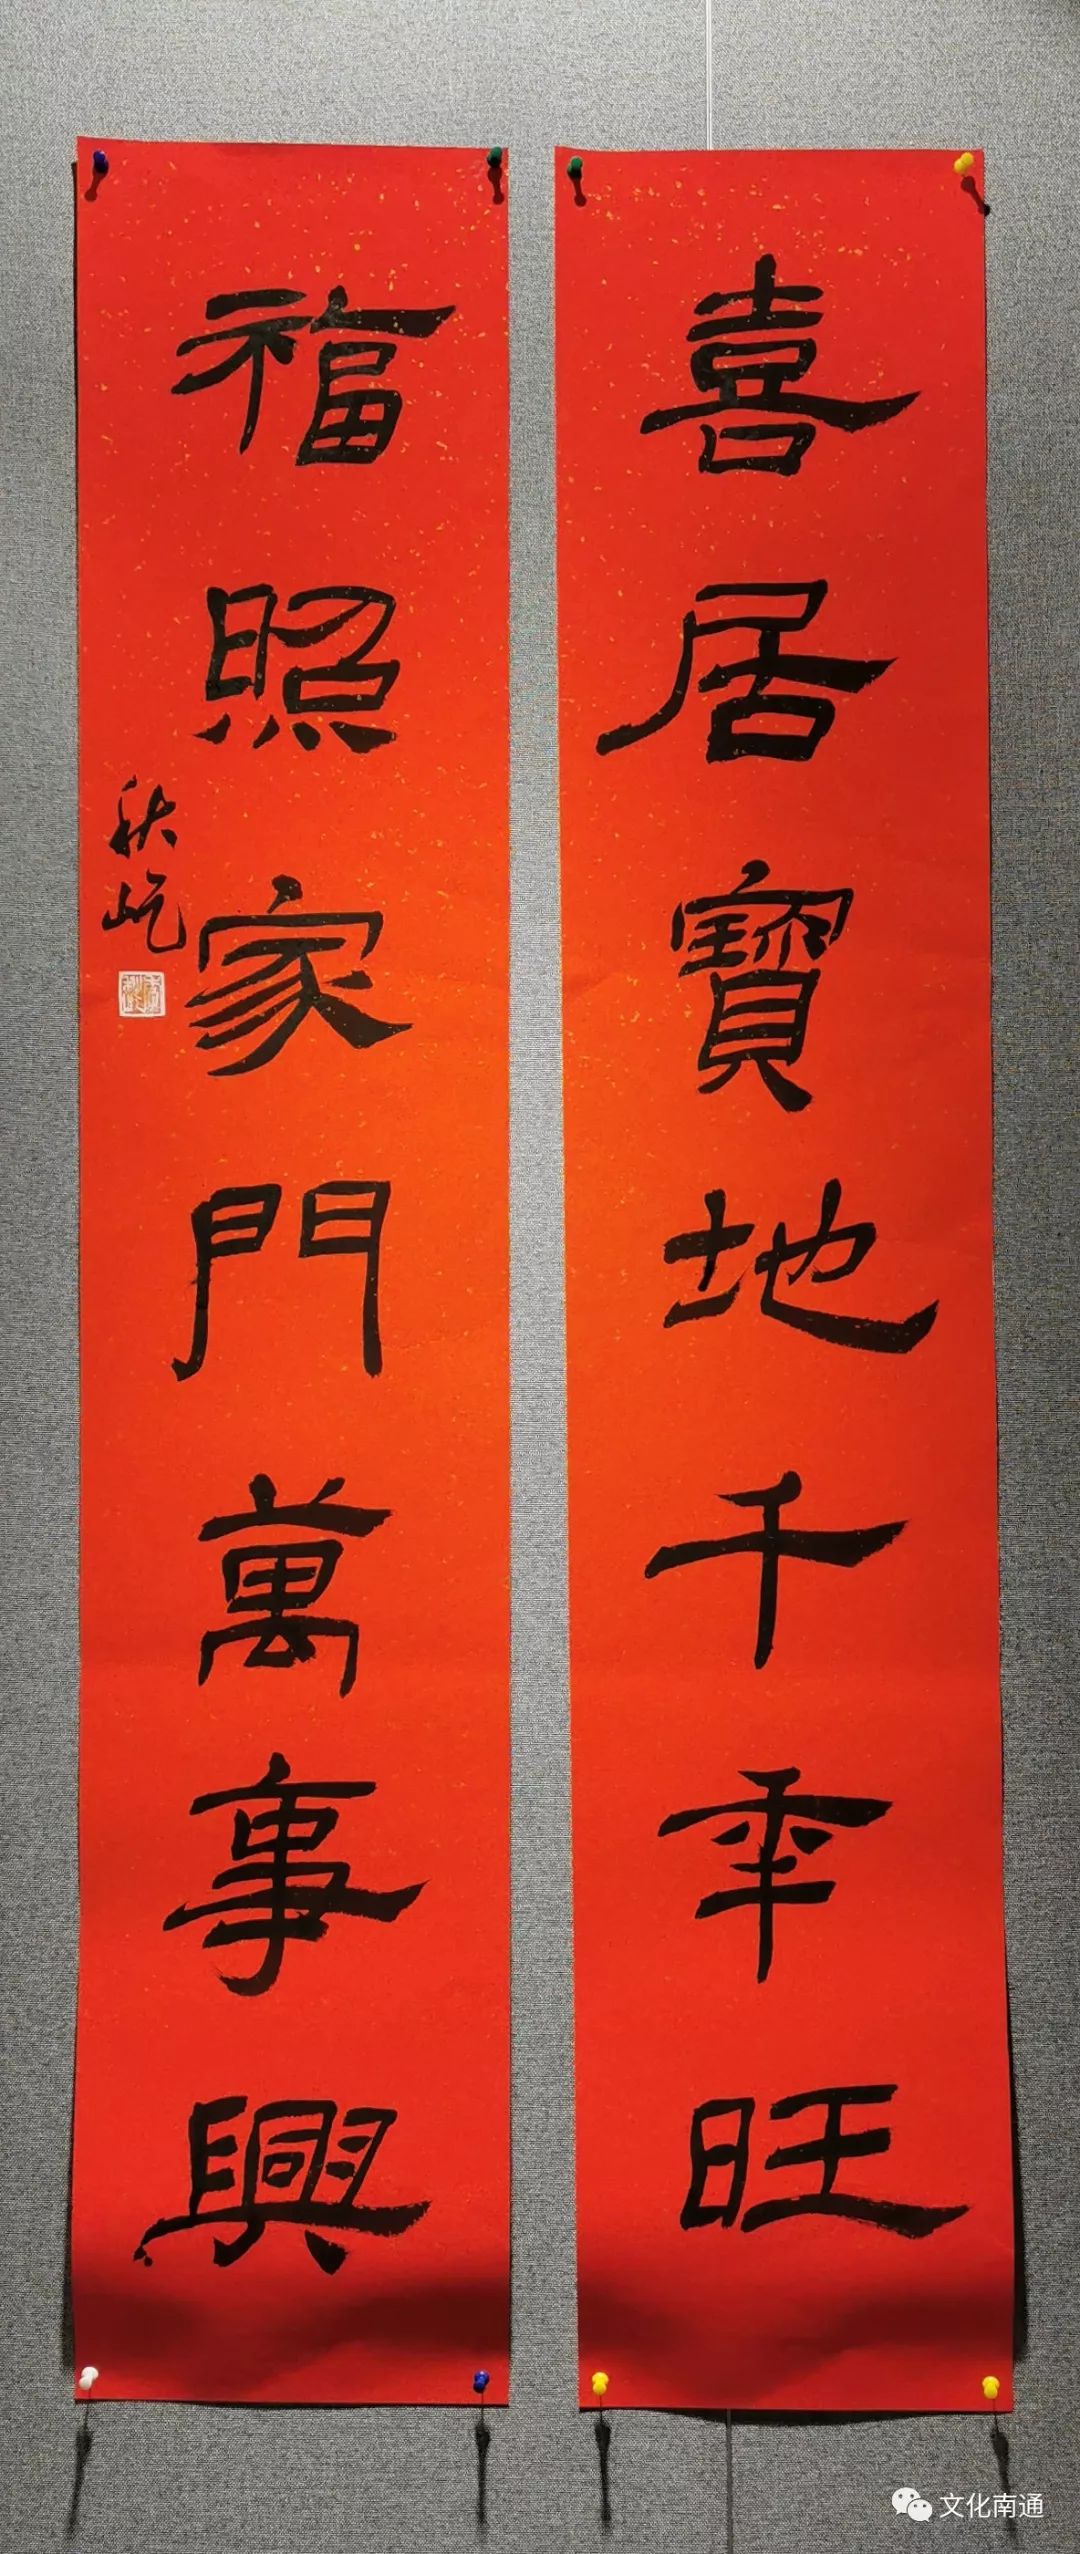 喜居寶地千年旺
福照家門萬事興
秋屹
文化南通